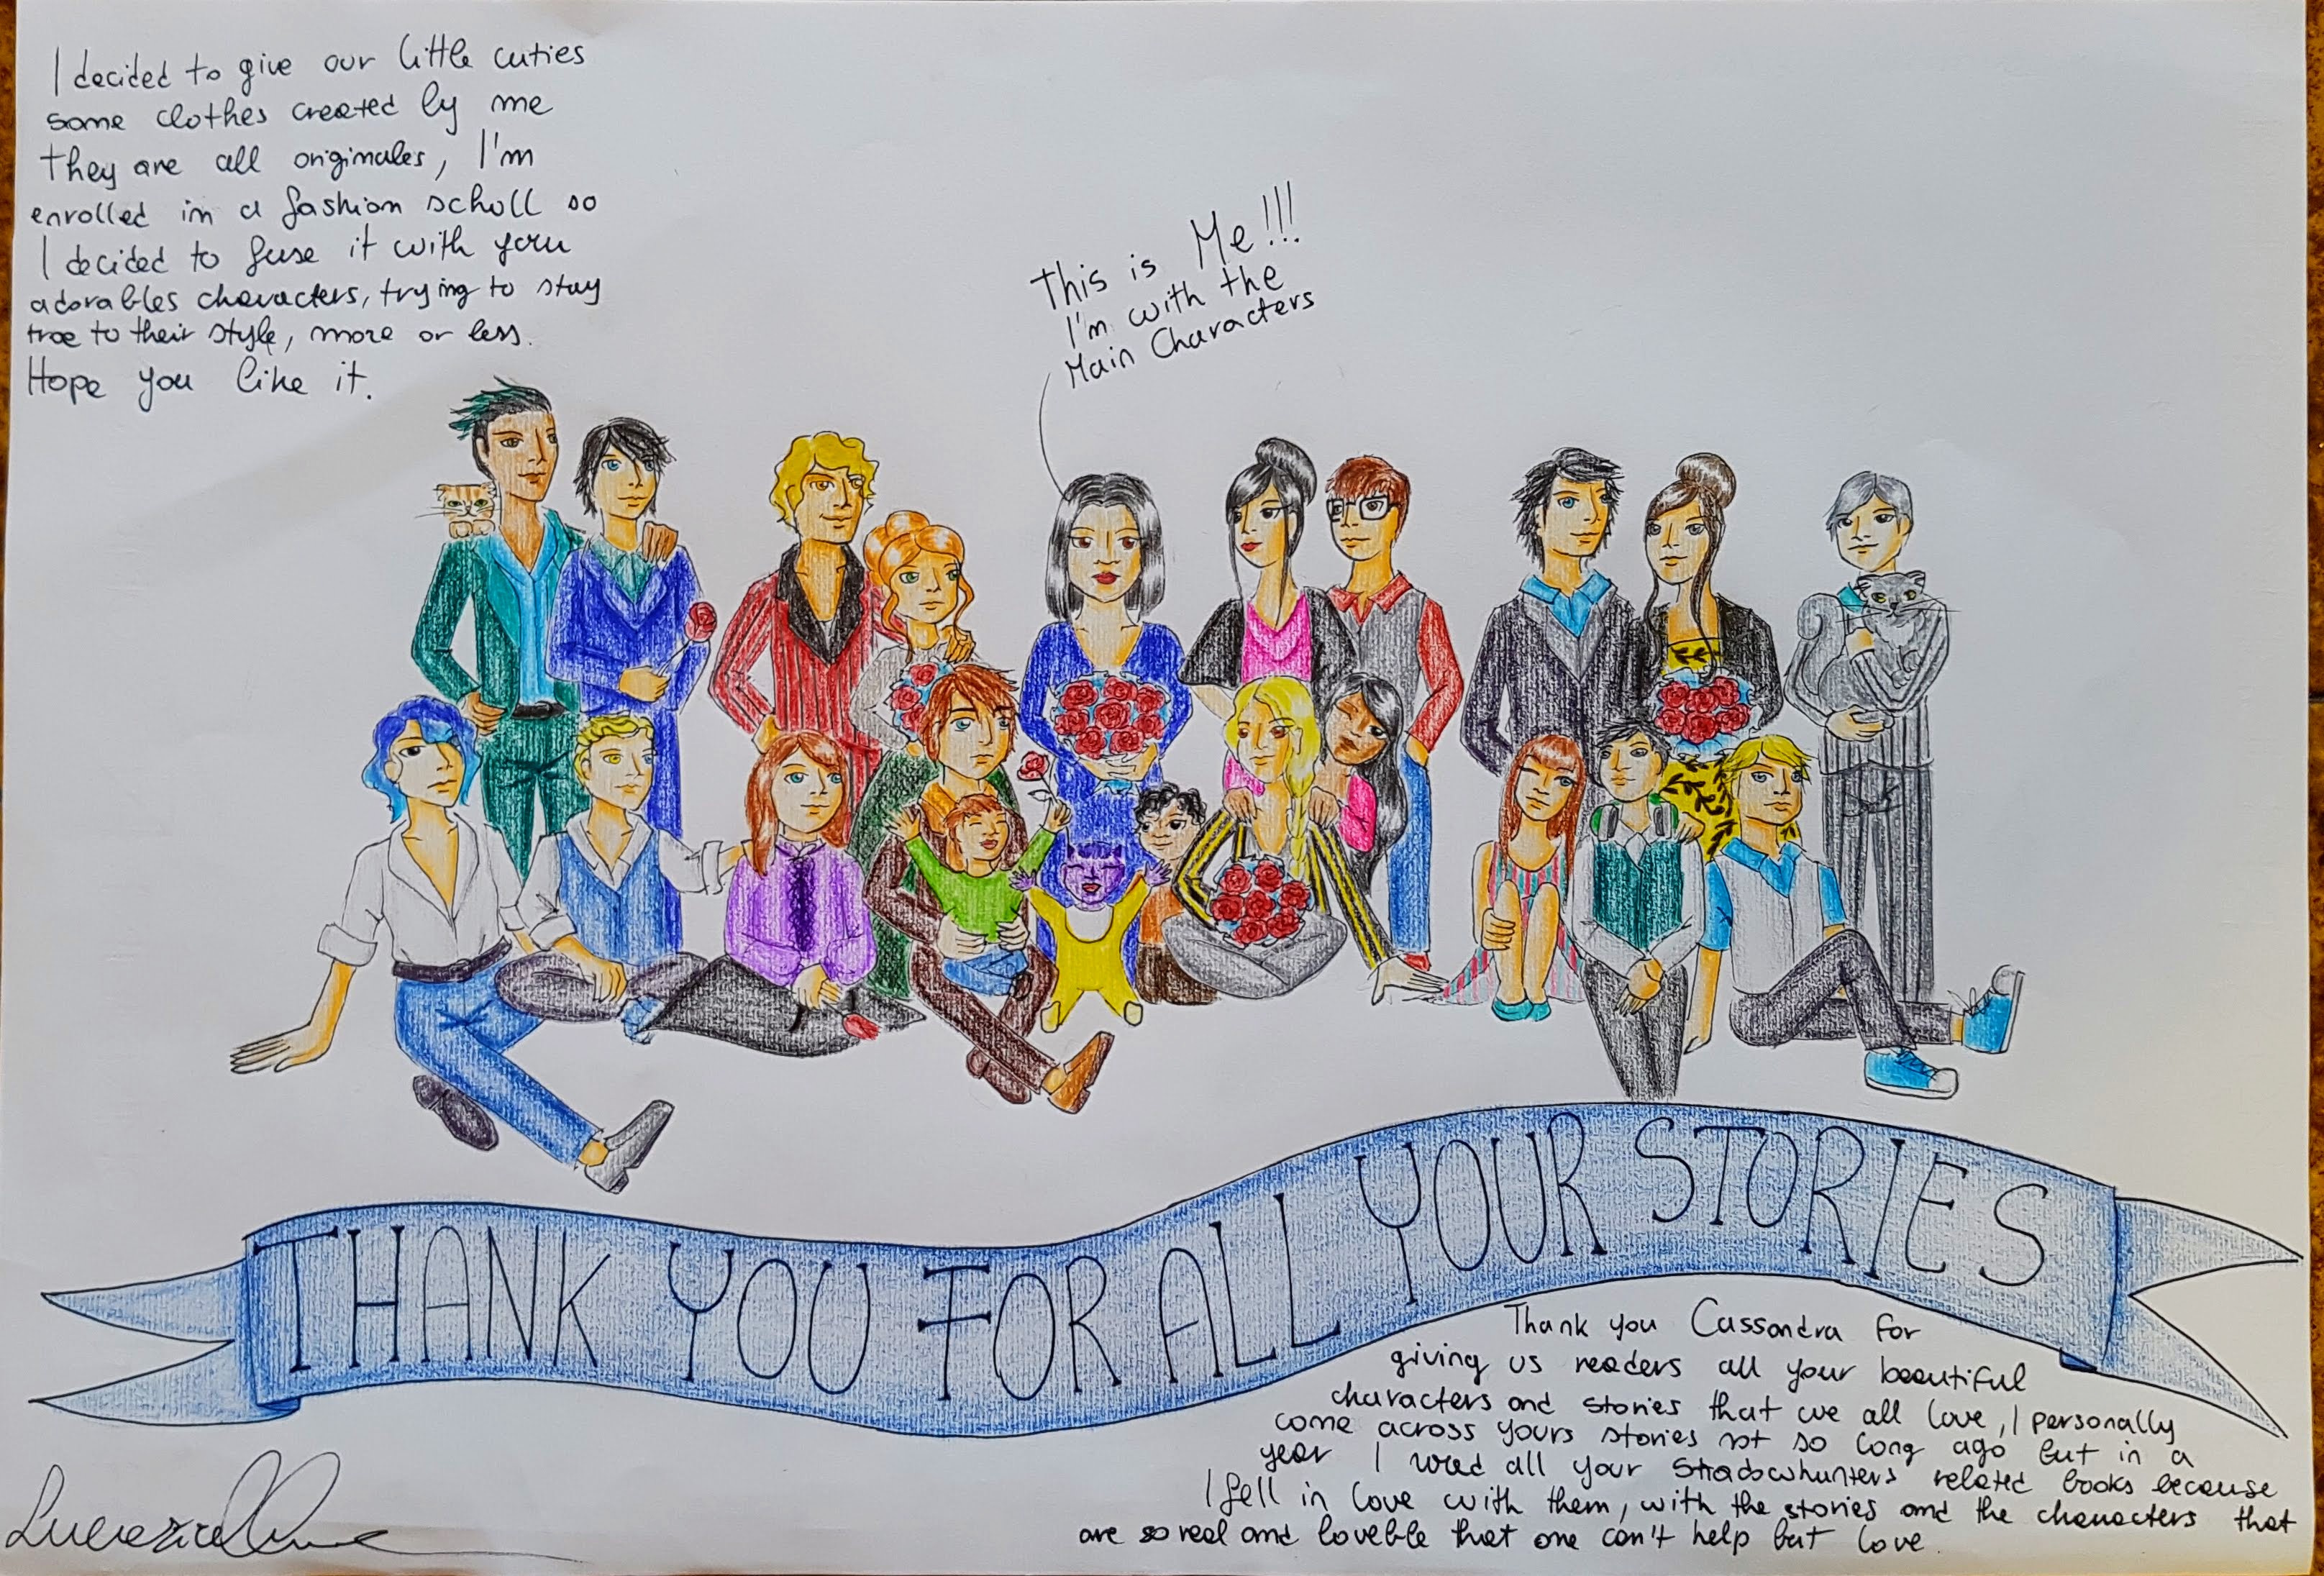 I decided to give our little cuties
some clothes created by me
they are all originales, I'm
enrolled in a fashion scholl so
I decided to fuse it with your
adorables characters, trying to stay
true to their style, more or less.
Hope you like it.
This is Me!!!
I'm with the
Main Characters
THANK YOU FOR ALL YOUR STORIES
Thank you Cassandra for
giving us readers all your beautiful
characters and stories that we all love, I personally
come across yours stories not so long ago but in a
year I read all your Shadowhunters related books because
I fell in love with them, with the stories and the characters that
are so real and loveble that one can't help but love.